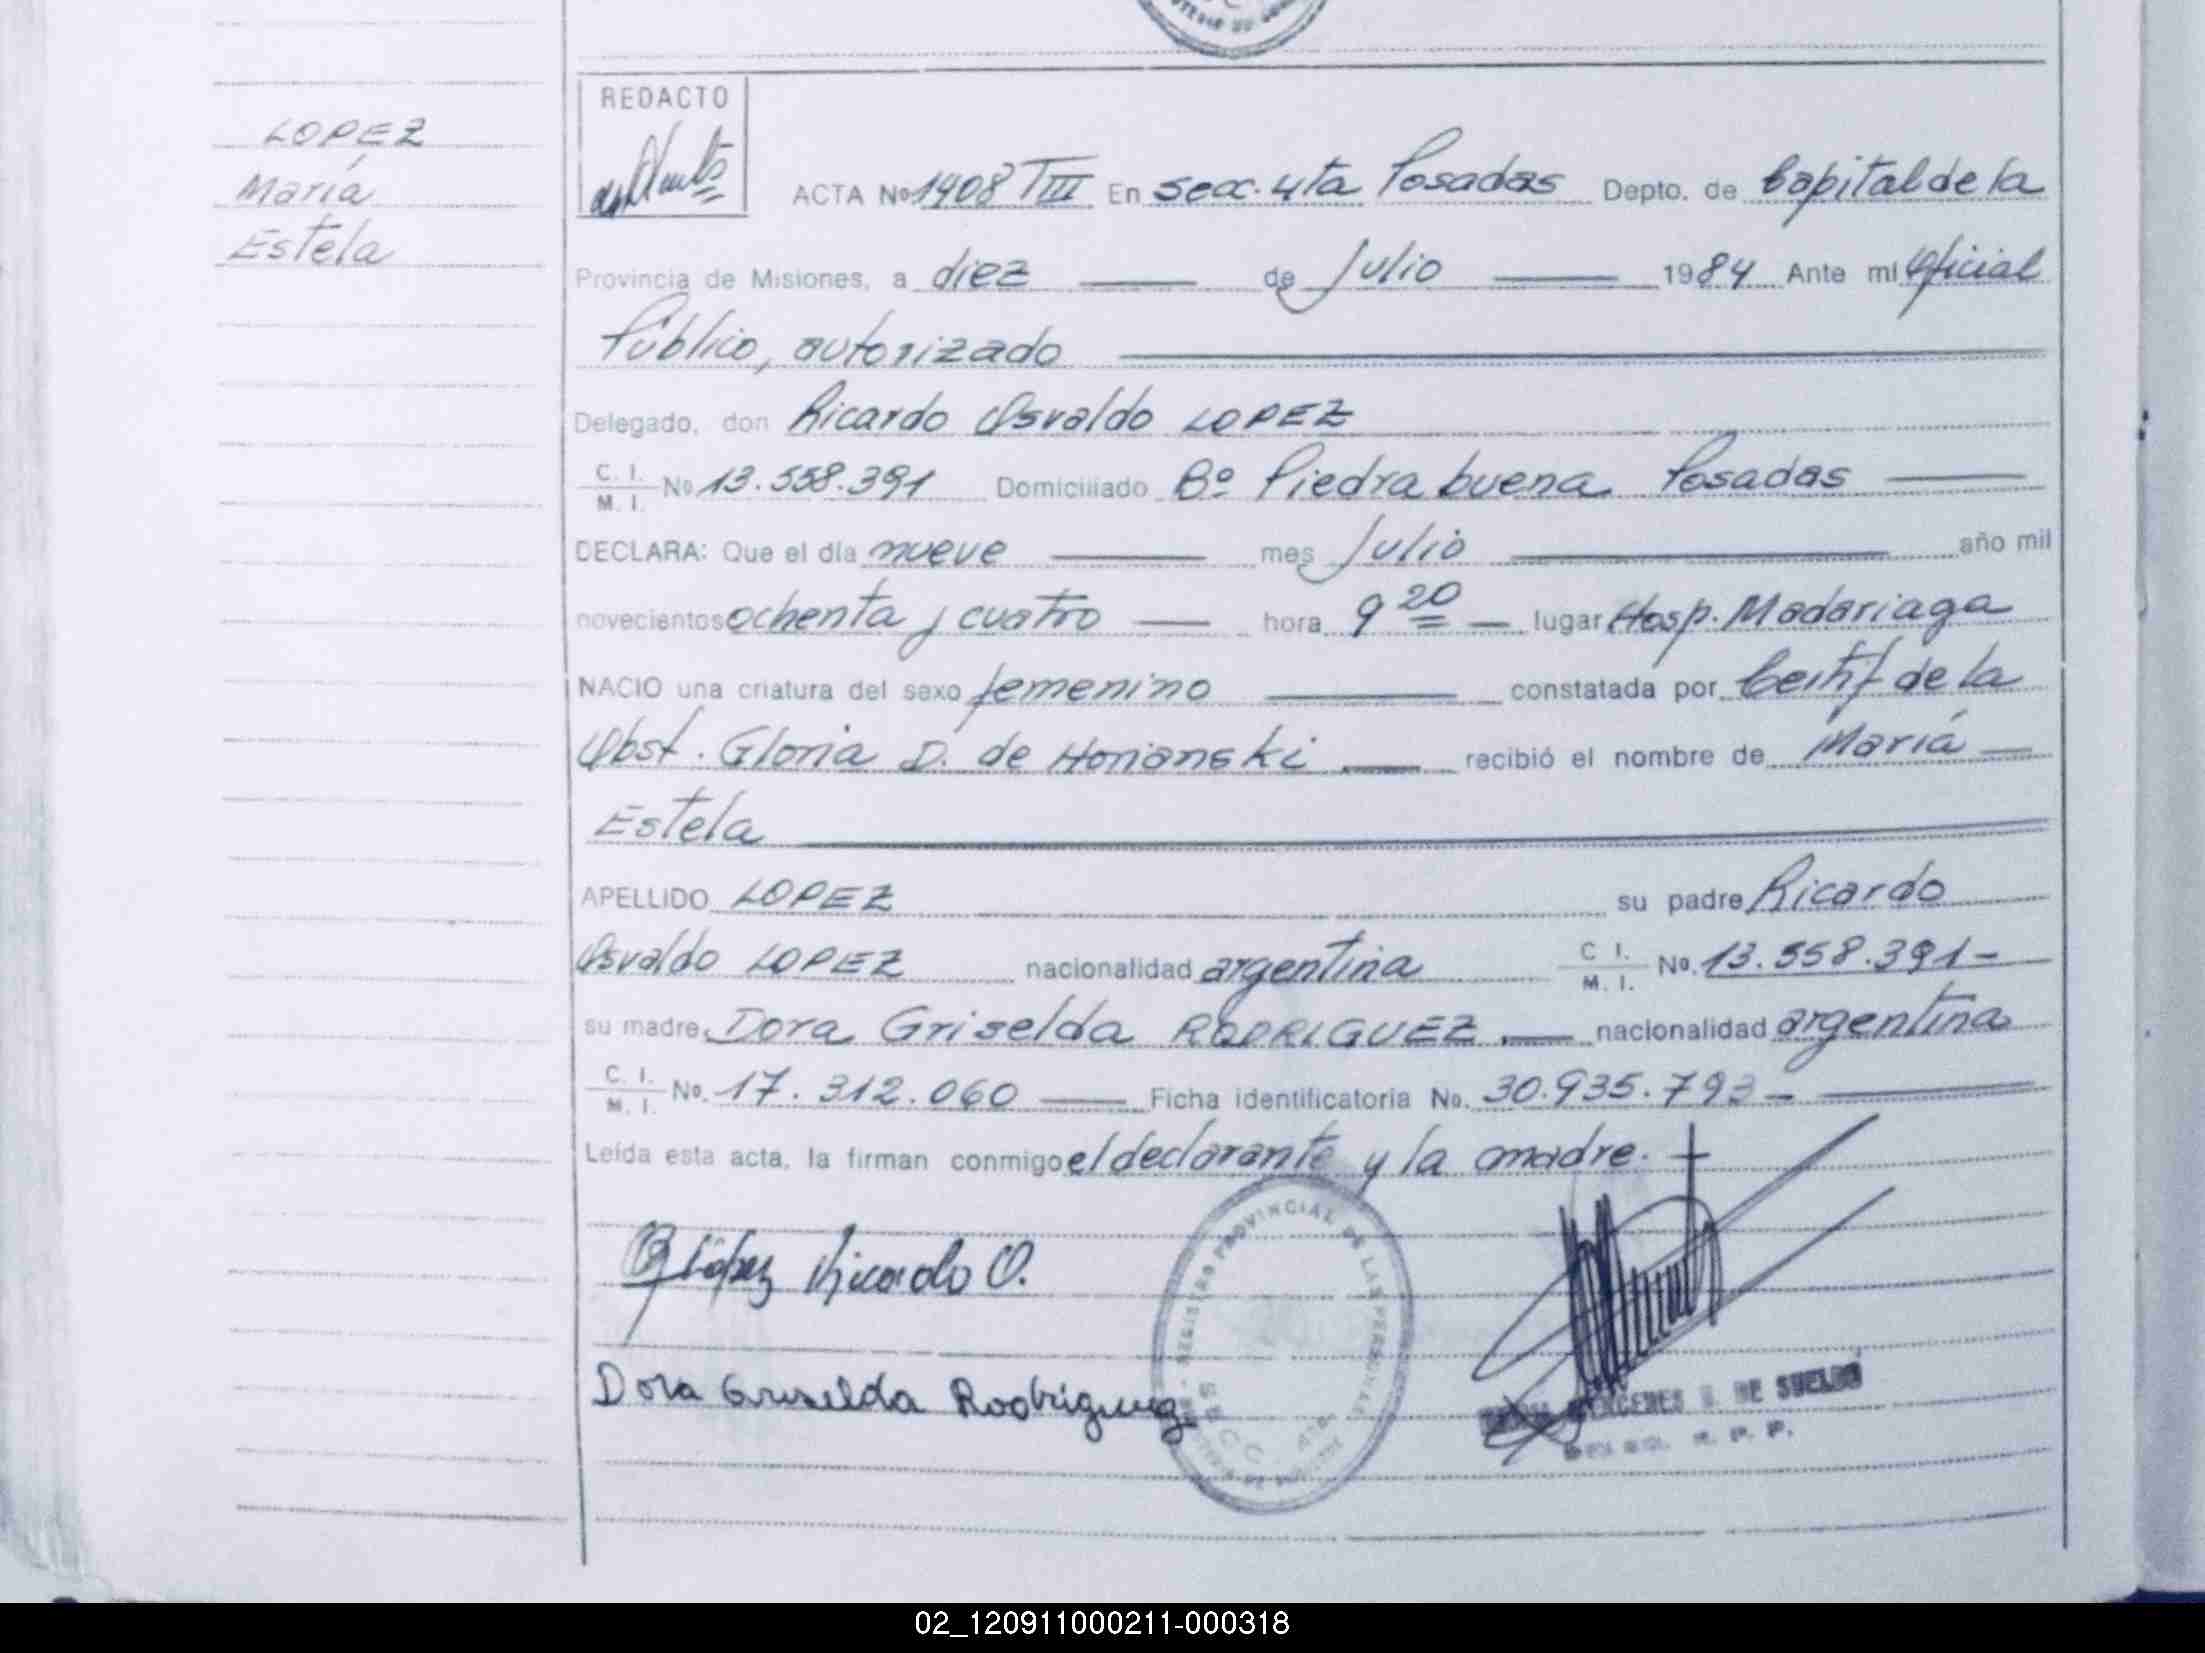 LOPEZ
María
Estela
REDACTO
ACTA No 1408 TIII En secc. 4ta Posadas Depto. de Capital de la
Provincia de Misiones, a diez de Julio 1984 Ante mí Oficial
Público, autorizado
Delegado, don Ricardo Osvaldo LOPEZ
C. I.
M. I. No 13.558.391 Domiciliado Bº Piedra buena Posadas
DECLARA: Que el día nueve mes Julio año mil
novecientos ochenta y cuatro hora 9 20 lugar Hosp. Madariaga
NACIO una criatura del sexo femenino constatada por Certif de la
Obst. Gloria D. de Horianski recibió el nombre de María
Estela
APELLIDO LOPEZ su padre Ricardo
Osvaldo LOPEZ nacionalidad argentina C. I. M. I. No. 13.558.391-
su madre Dora Griselda RODRIGUEZ nacionalidad argentina
C. I.
M. I. No. 17.312.060 Ficha identificatoria No. 30.935.793-
Leída esta acta, la firman conmigo el declarante y la madre.
López Ricardo O.
Dora Griselda Rodriguez
REGISTRO PROVINCIAL DE LAS PERSONAS
SECC. 4ta
DE SUELDO
R. P. P.
02_120911000211-000318